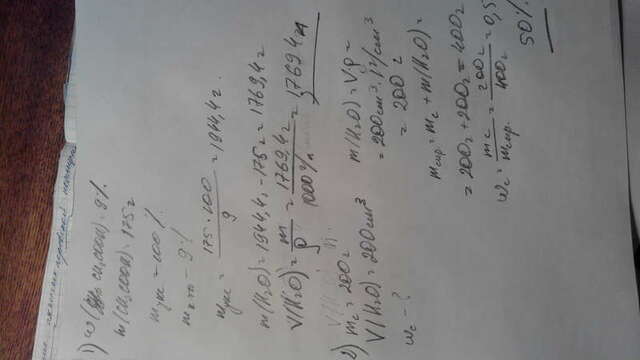 1) ω(CH₃COOH) = 9%
m(CH₃COOH) = 175 г
mукс – 100%
– 9%
mукс = 175 · 100 / 9 = 1944,4 г.
m(H₂O) = 1944,4 - 175 г = 1769,4 г
V(H₂O) = m / ρ = 1769,4 г / 1000 г/л = 1,7694 л
2) mс = 200 г
V(H₂O) = 200 см³
ωс – ?
m(H₂O) = Vρ =
= 200 см³ · 1 г/см³
= 200 г
mсир = mс + m(H₂O) =
= 200 г + 200 г = 400 г
ωс = mс / mсир = 200 г / 400 г = 0,5
50%